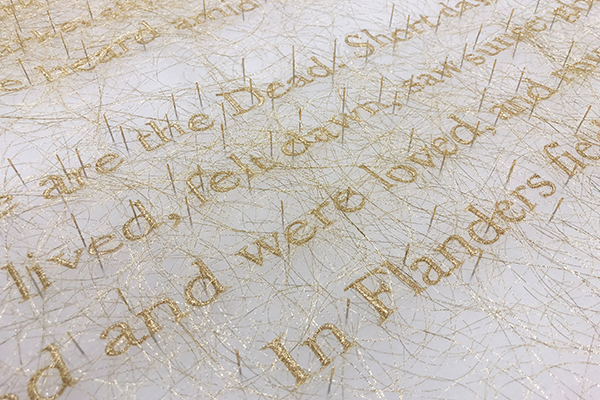 heard amid
are the Dead. Short da
lived, felt dawn, saw sunse
d and were loved, and
In Flanders fie